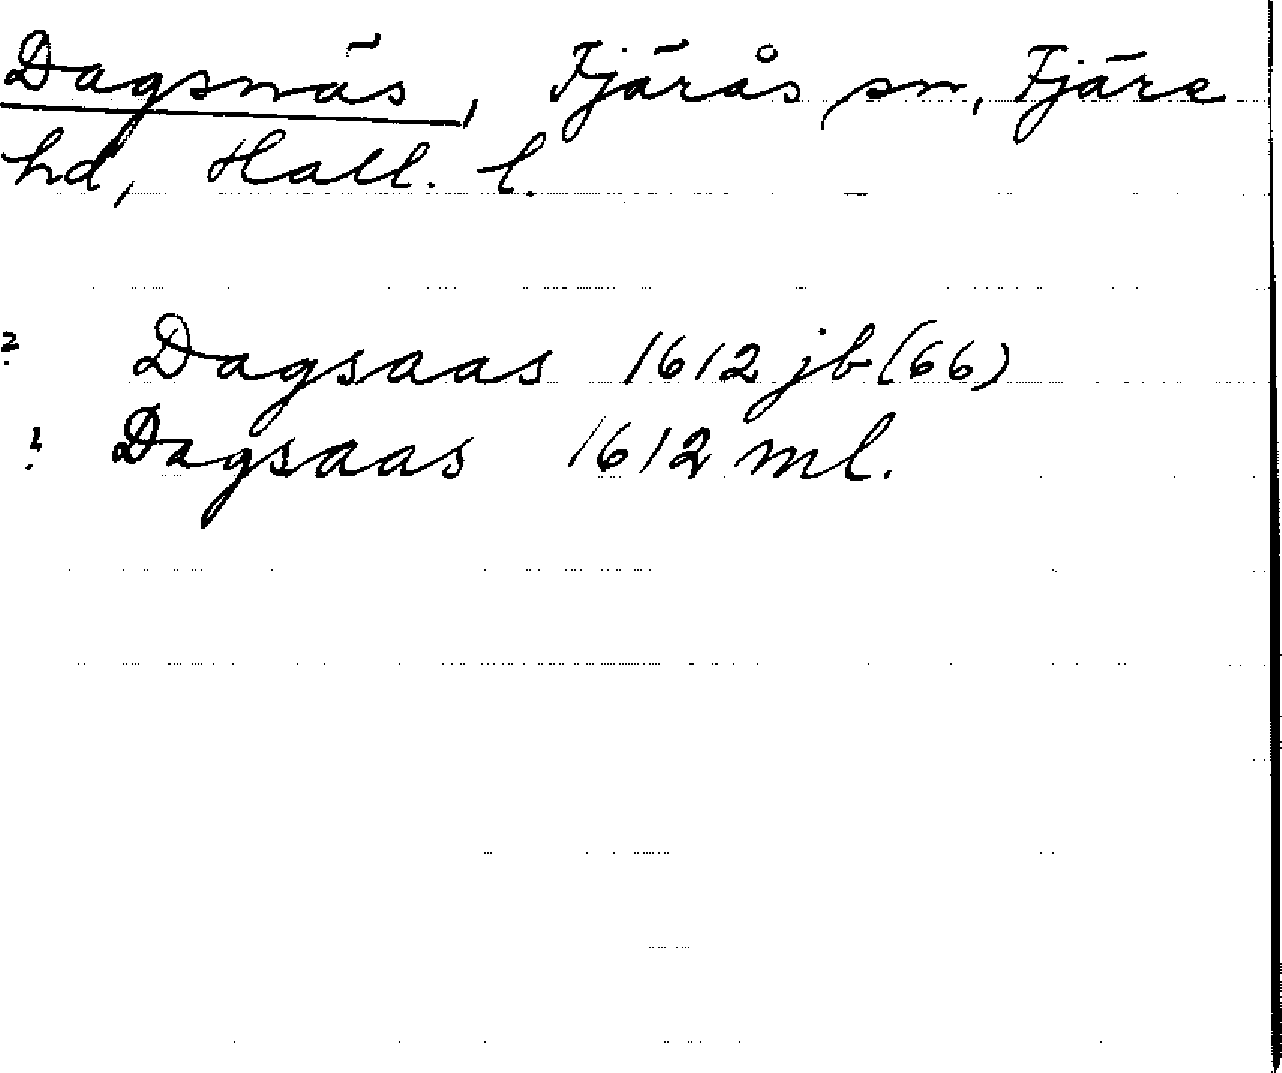 Dagsnäs, Fjärås sn, Fjäre
hd, Hall. l.
? Dagsaas 1612 jb (66)
? Dagsaas 1612 ml.